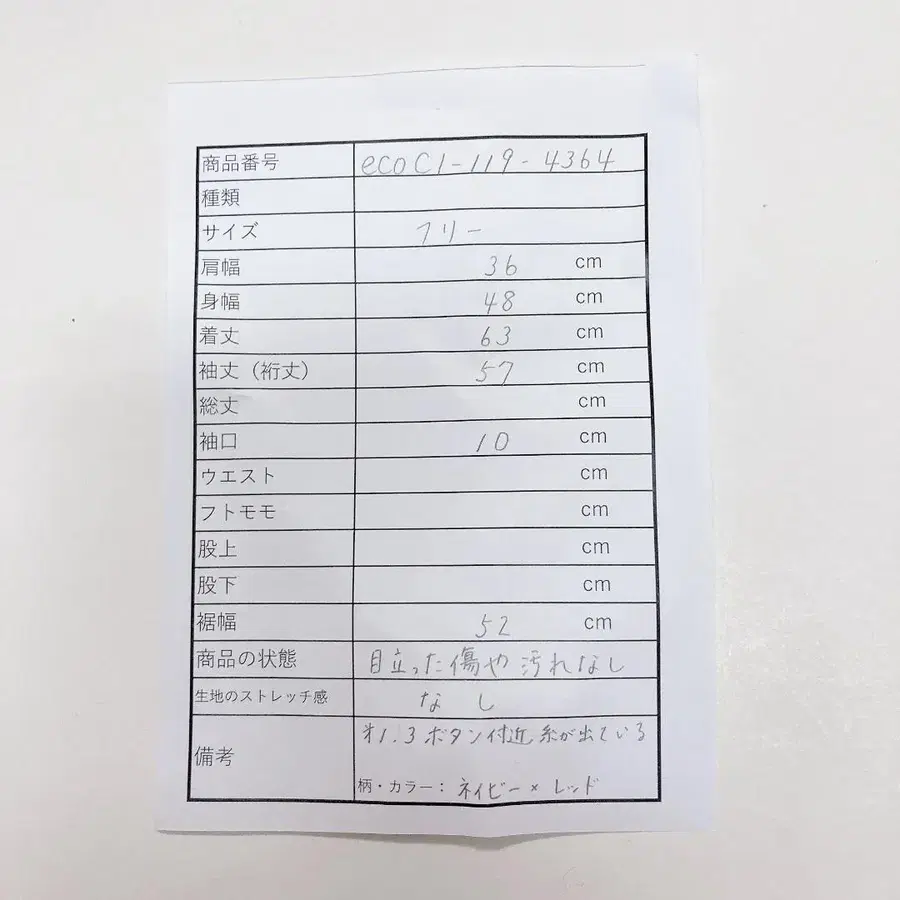 商品番号 ecoC1-119-4364
種類
サイズ フリー
肩幅 36 cm
身幅 48 cm
着丈 63 cm
袖丈（裄丈） 57 cm
総丈 cm
袖口 10 cm
ウエスト cm
フトモモ cm
股上 cm
股下 cm
裾幅 52 cm
商品の状態 目立った傷や汚れなし
生地のストレッチ感 なし
備考 1.3ボタン付近糸が出ている
柄・カラー： ネイビー×レッド